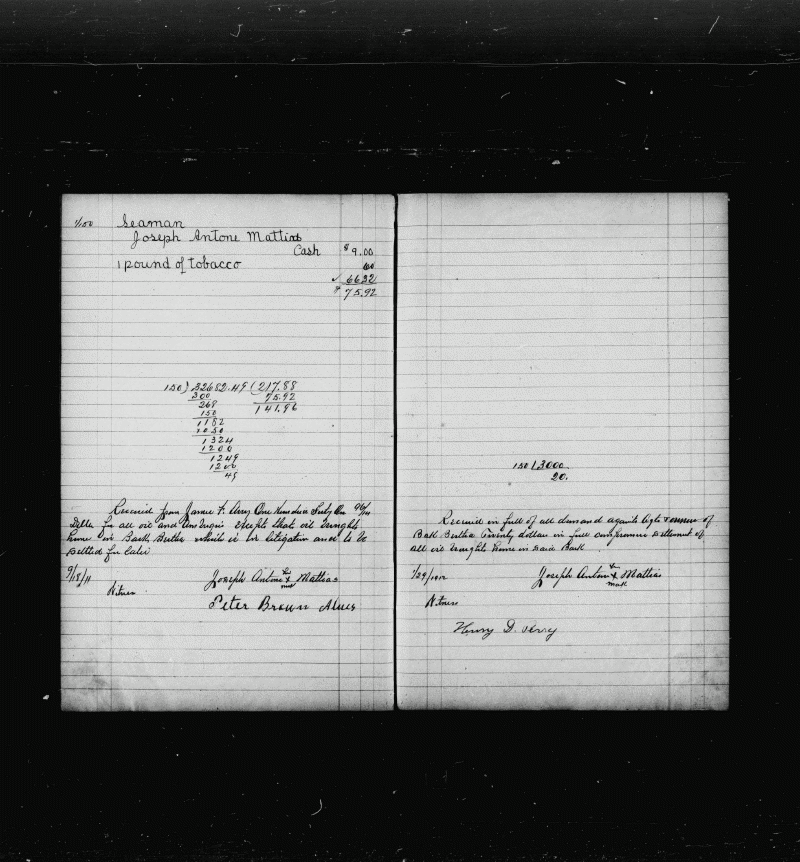 1/150 Seaman
Joseph Antone Mattias
Cash $9.00
1 pound of tobacco 60
✓ 66 32
$ 75.92
150 ) 32682.49 ( 217.88
300 75.92
268 141.96
150
1182
1050
1324
1200
1249
1200
49
Received from James F. Avery One Hundred 96/100
Dolls for all oil and except that oil brought
home in Bark Bertha which is in litigation and to be
settled for later
9/18/11 Joseph Antone his x mark Mattias
Witness
Peter Brown Alves
150 / 3000.
20.
Received in full of all demand against Agts & owners of
Bark Bertha Twenty dollars in full compromise settlement of
all oil brought home in said Bark.
1/29/1912 Joseph Antone his x mark Mattias
Witness
Henry D.